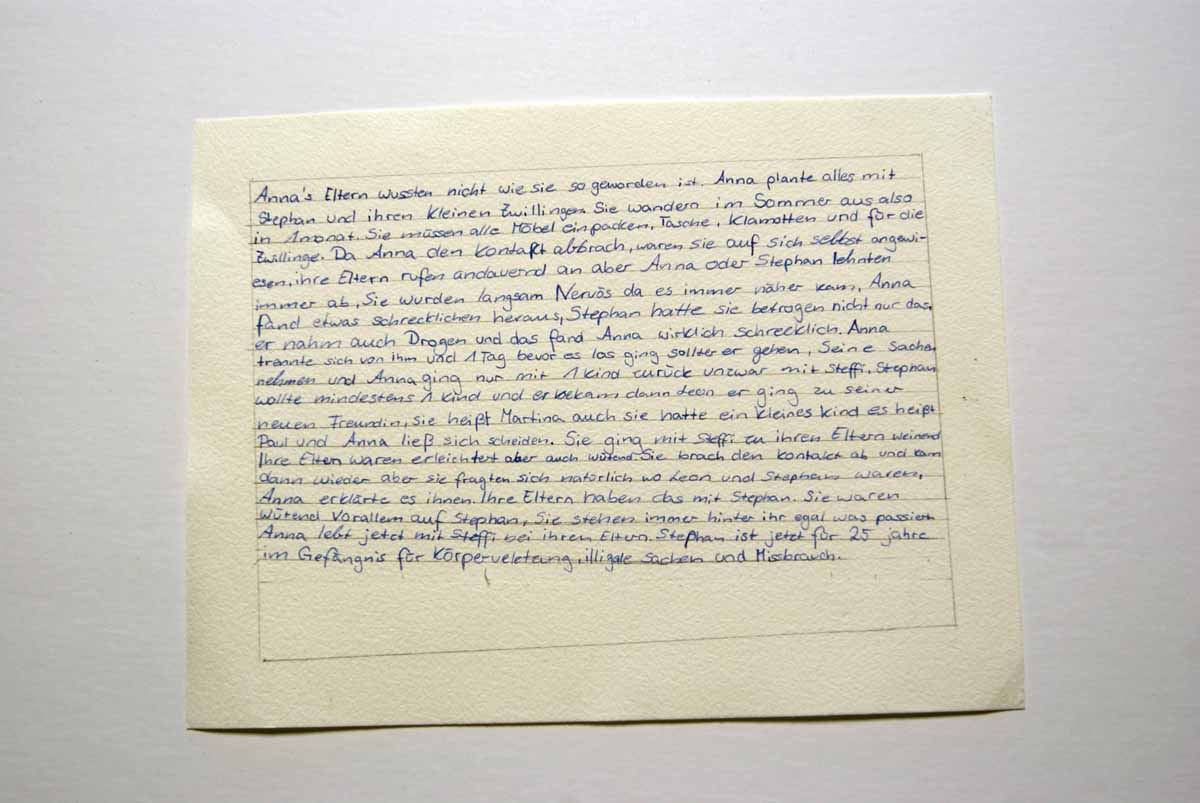 Anna's Eltern wussten nicht wie sie so geworden ist. Anna plante alles mit
Stephan und ihren kleinen Zwillingen. Sie wandern im Sommer aus also
in 1 monat. Sie müssen alle Möbel einpacken, Tasche, Klamotten und für die
Zwillinge. Da Anna den Kontakt abbrach, waren sie auf sich selbst angewi-
esen, ihre Eltern rufen andauernd an aber Anna oder Stephan lehnten
immer ab, Sie wurden langsam Nervös da es immer näher kam, Anna
fand etwas schrecklichen heraus, Stephan hatte sie betrogen nicht nur das,
er nahm auch Drogen und das fand Anna wirklich schrecklich. Anna
trennte sich von ihm und 1 Tag bevor es los ging sollter er gehen, Seine Sachen
nehmen und Anna ging nur mit 1 kind zurück unzwar mit Steffi, Stephan
wollte mindestens 1 kind und er bekam dann Leon er ging zu seiner
neuen Freundin, sie heißt Martina auch sie hatte ein kleines kind es heißt
Paul und Anna ließ sich scheiden. Sie ging mit Steffi zu ihren Eltern weinend
Ihre Eltern waren erleichtert aber auch wütend. Sie brach den kontakt ab und kam
dann wieder aber sie fragten sich natürlich wo Leon und Stephan waren,
Anna erklärte es ihnen. Ihre Eltern haben das mit Stephan. Sie waren
Wütend Vorallem auf Stephan, Sie stehen immer hinter ihr egal was passiert
Anna lebt jetzt mit Steffi bei ihren Eltern. Stephan ist jetzt für 25 jahre
im Gefängnis für Körperveletzung, illigale sachen und Missbrauch.